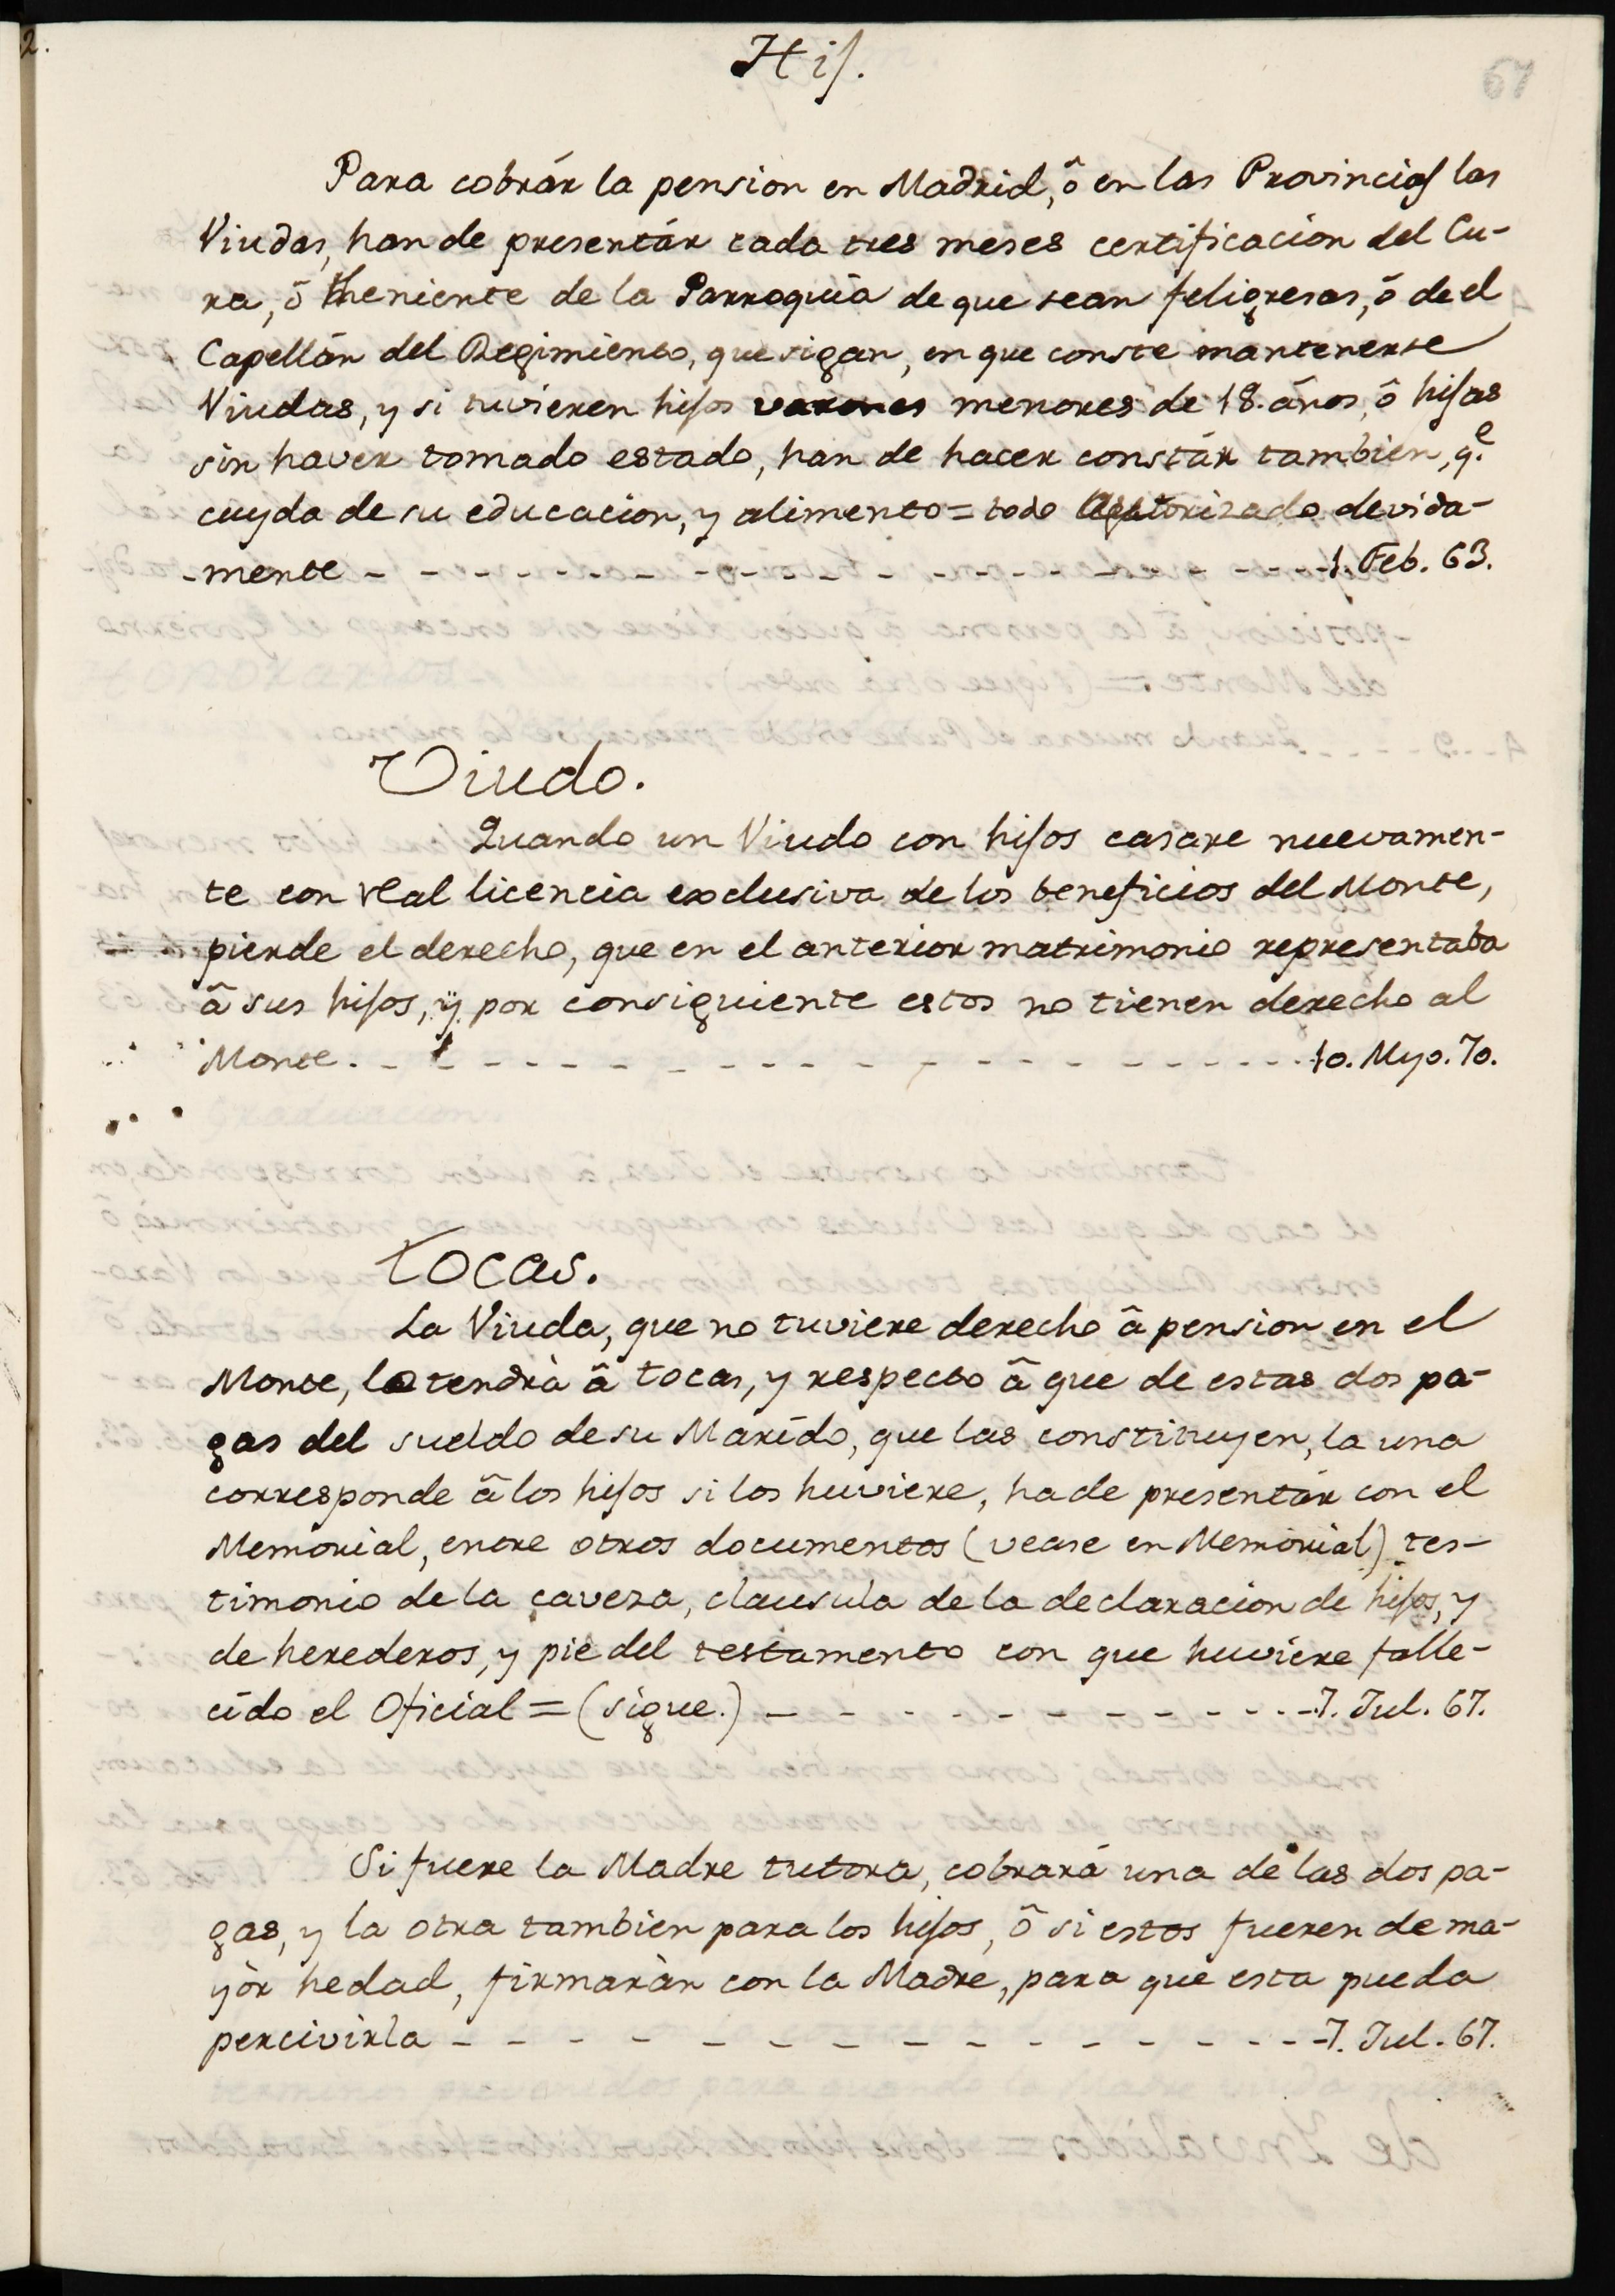 2.
Hij.
67
Para cobrár la pension en Madrid, ô en las Provincias las
Viudas, han de presentár cada tres meses certificacion del Cu-
ra, ô theniente de la Parroquia de que sean feligresas, ô de el
Capellán del Regimiento, que sigan, en que conste mantenerse
Viudas, y si tuvieren hijos varones menores de 18. años, ô hijas
sin haver tomado estado, han de hacer constár tambien, q.e
cuyda de su educacion, y alimento = todo autorizado devida-
-mente - - - - - - - - - - - - - - - 1. Feb. 63.
Viudo.
Quando un Viudo con hijos casare nuevamen-
te con Real licencia exclusiva de los beneficios del Monte,
pierde el derecho, que en el anterior matrimonio representaba
â sus hijos, ÿ por consiguiente estos no tienen derecho al
Monte. - - - - - - - - - - - - - - - 10. Myo. 70.
Tocas.
La Viuda, que no tuviere derecho â pension en el
Monte, lo tendrà â tocas, y respecto â que de estas dos pa-
gas del sueldo de su Marido, que las constituyen, la una
corresponde â los hijos si los huviere, ha de presentár con el
Memorial, entre otros documentos (vease en Memorial) tes-
timonio de la caveza, clausula de la declaracion de hijos, y
de herederos, y pie del testamento con que huviere falle-
cido el Oficial = (sigue.) - - - - - - - - - - - 7. Jul. 67.
Si fuere la Madre tutora, cobrará una de las dos pa-
gas, y la otra tambien para los hijos, ô si estos fueren de ma-
yòr hedad, firmaràn con la Madre, para que esta pueda
percivirla - - - - - - - - - - - - - - - 7. Jul. 67.